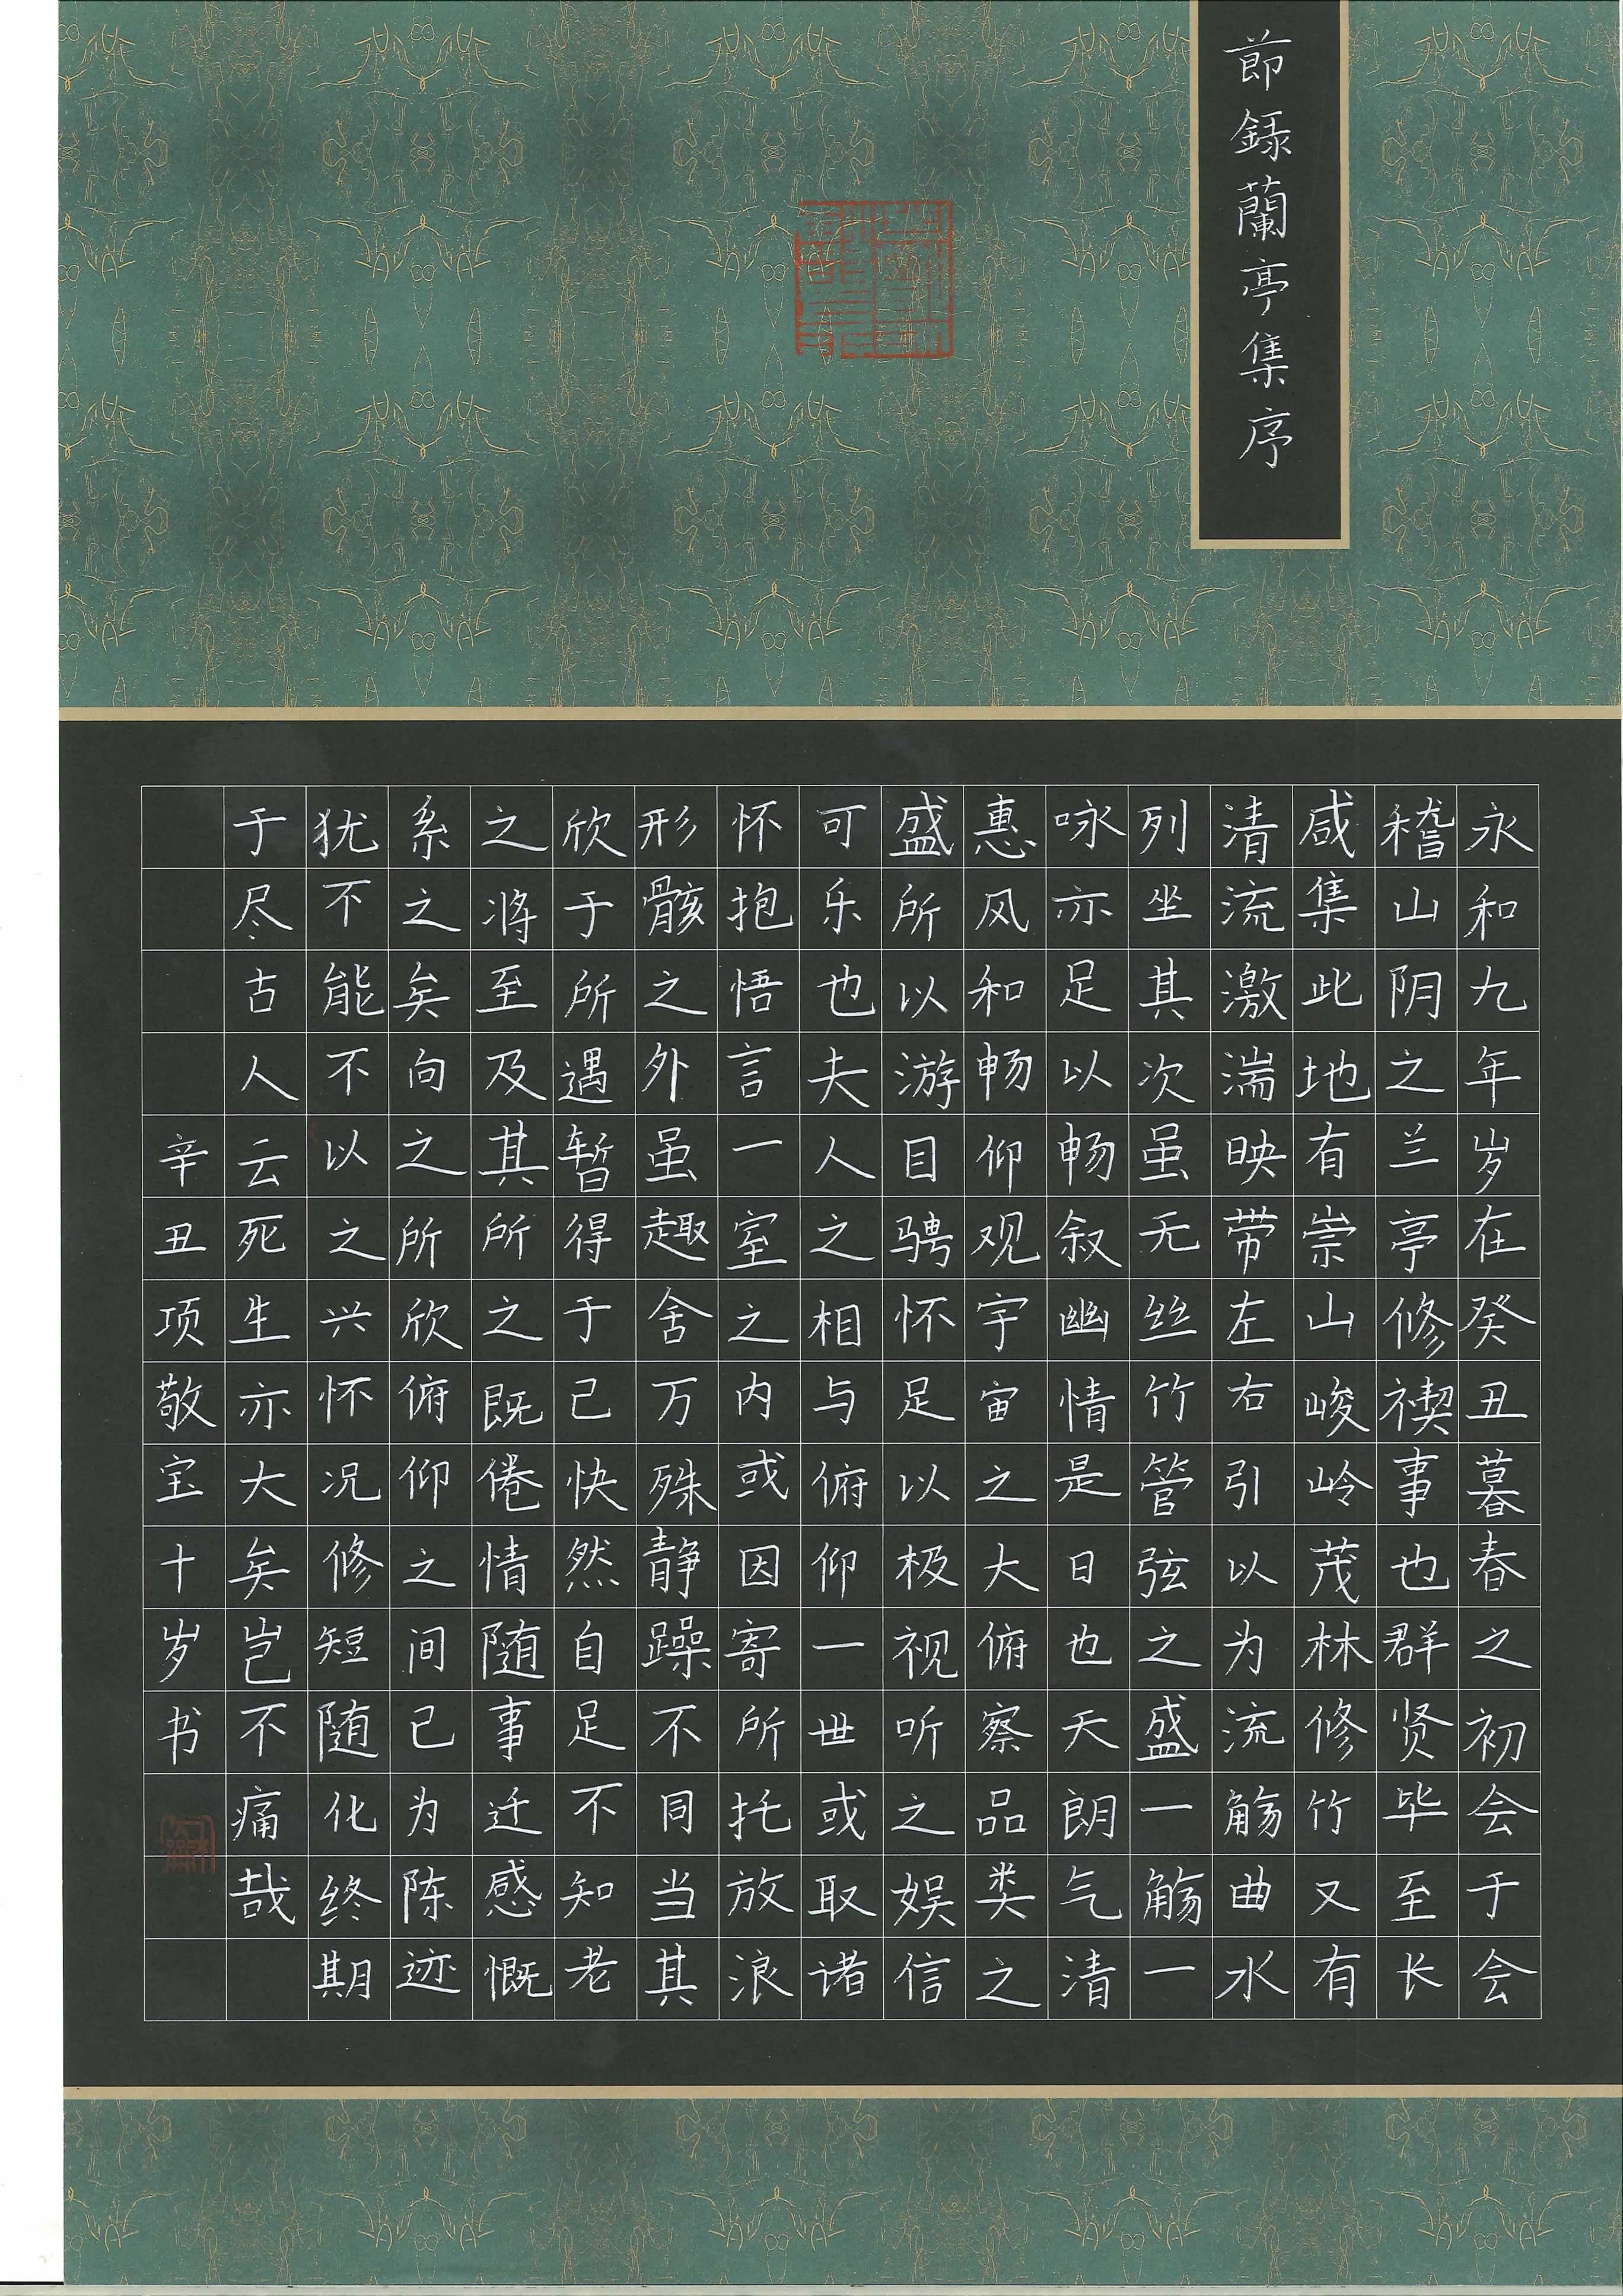 節錄蘭亭集序
永和九年岁在癸丑暮春之初会于会
稽山阴之兰亭修禊事也群贤毕至长
咸集此地有崇山峻岭茂林修竹又有
清流激湍映带左右引以为流觞曲水
列坐其次虽无丝竹管弦之盛一觞一
咏亦足以畅叙幽情是日也天朗气清
惠风和畅仰观宇宙之大俯察品类之
盛所以游目骋怀足以极视听之娱信
可乐也夫人之相与俯仰一世或取诸
怀抱悟言一室之内或因寄所托放浪
形骸之外虽趣舍万殊静躁不同当其
欣于所遇暂得于己快然自足不知老
之将至及其所之既倦情随事迁感慨
系之矣向之所欣俯仰之间已为陈迹
犹不能不以之兴怀况修短随化终期
于尽古人云死生亦大矣岂不痛哉
辛丑项敬宝十岁书